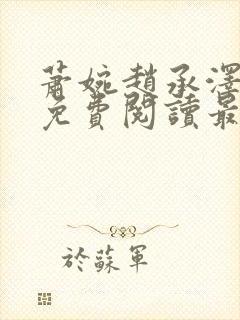 蕭婉趙承澤
免費閱讀最
於蘇軍